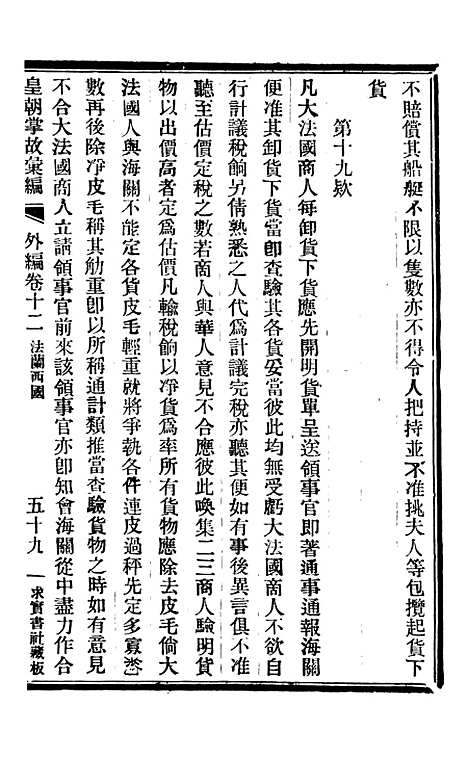 不賠償其船艇不限以隻數亦不得令人把持並不准挑夫人等包攬起貨下
貨
第十九欵
凡大法國商人每卸貨下貨應先開明貨單呈送領事官即著通事通報海關
便准其卸貨下貨當卽查驗其各貨妥當彼此均無受虧大法國商人不欲自
行計議稅餉另倩熟悉之人代爲計議完稅亦聽其便如有事後異言俱不准
聽至估價定稅之數若商人與華人意見不合應彼此喚集二三商人驗明貨
物以出價高者定爲估價凡輸稅餉以凈貨爲率所有貨物應除去皮毛倘大
法國人與海關不能定各貨皮毛輕重就將爭執各件連皮過秤先定多寡
數再後除凈皮毛稱其觔重卽以所稱通計類推當查驗貨物之時如有意見
不合大法國商人立請領事官前來該領事官亦卽知會海關從中盡力作合
皇朝掌故彙編 外編卷十二 法蘭西國 五十九 求實書社藏板